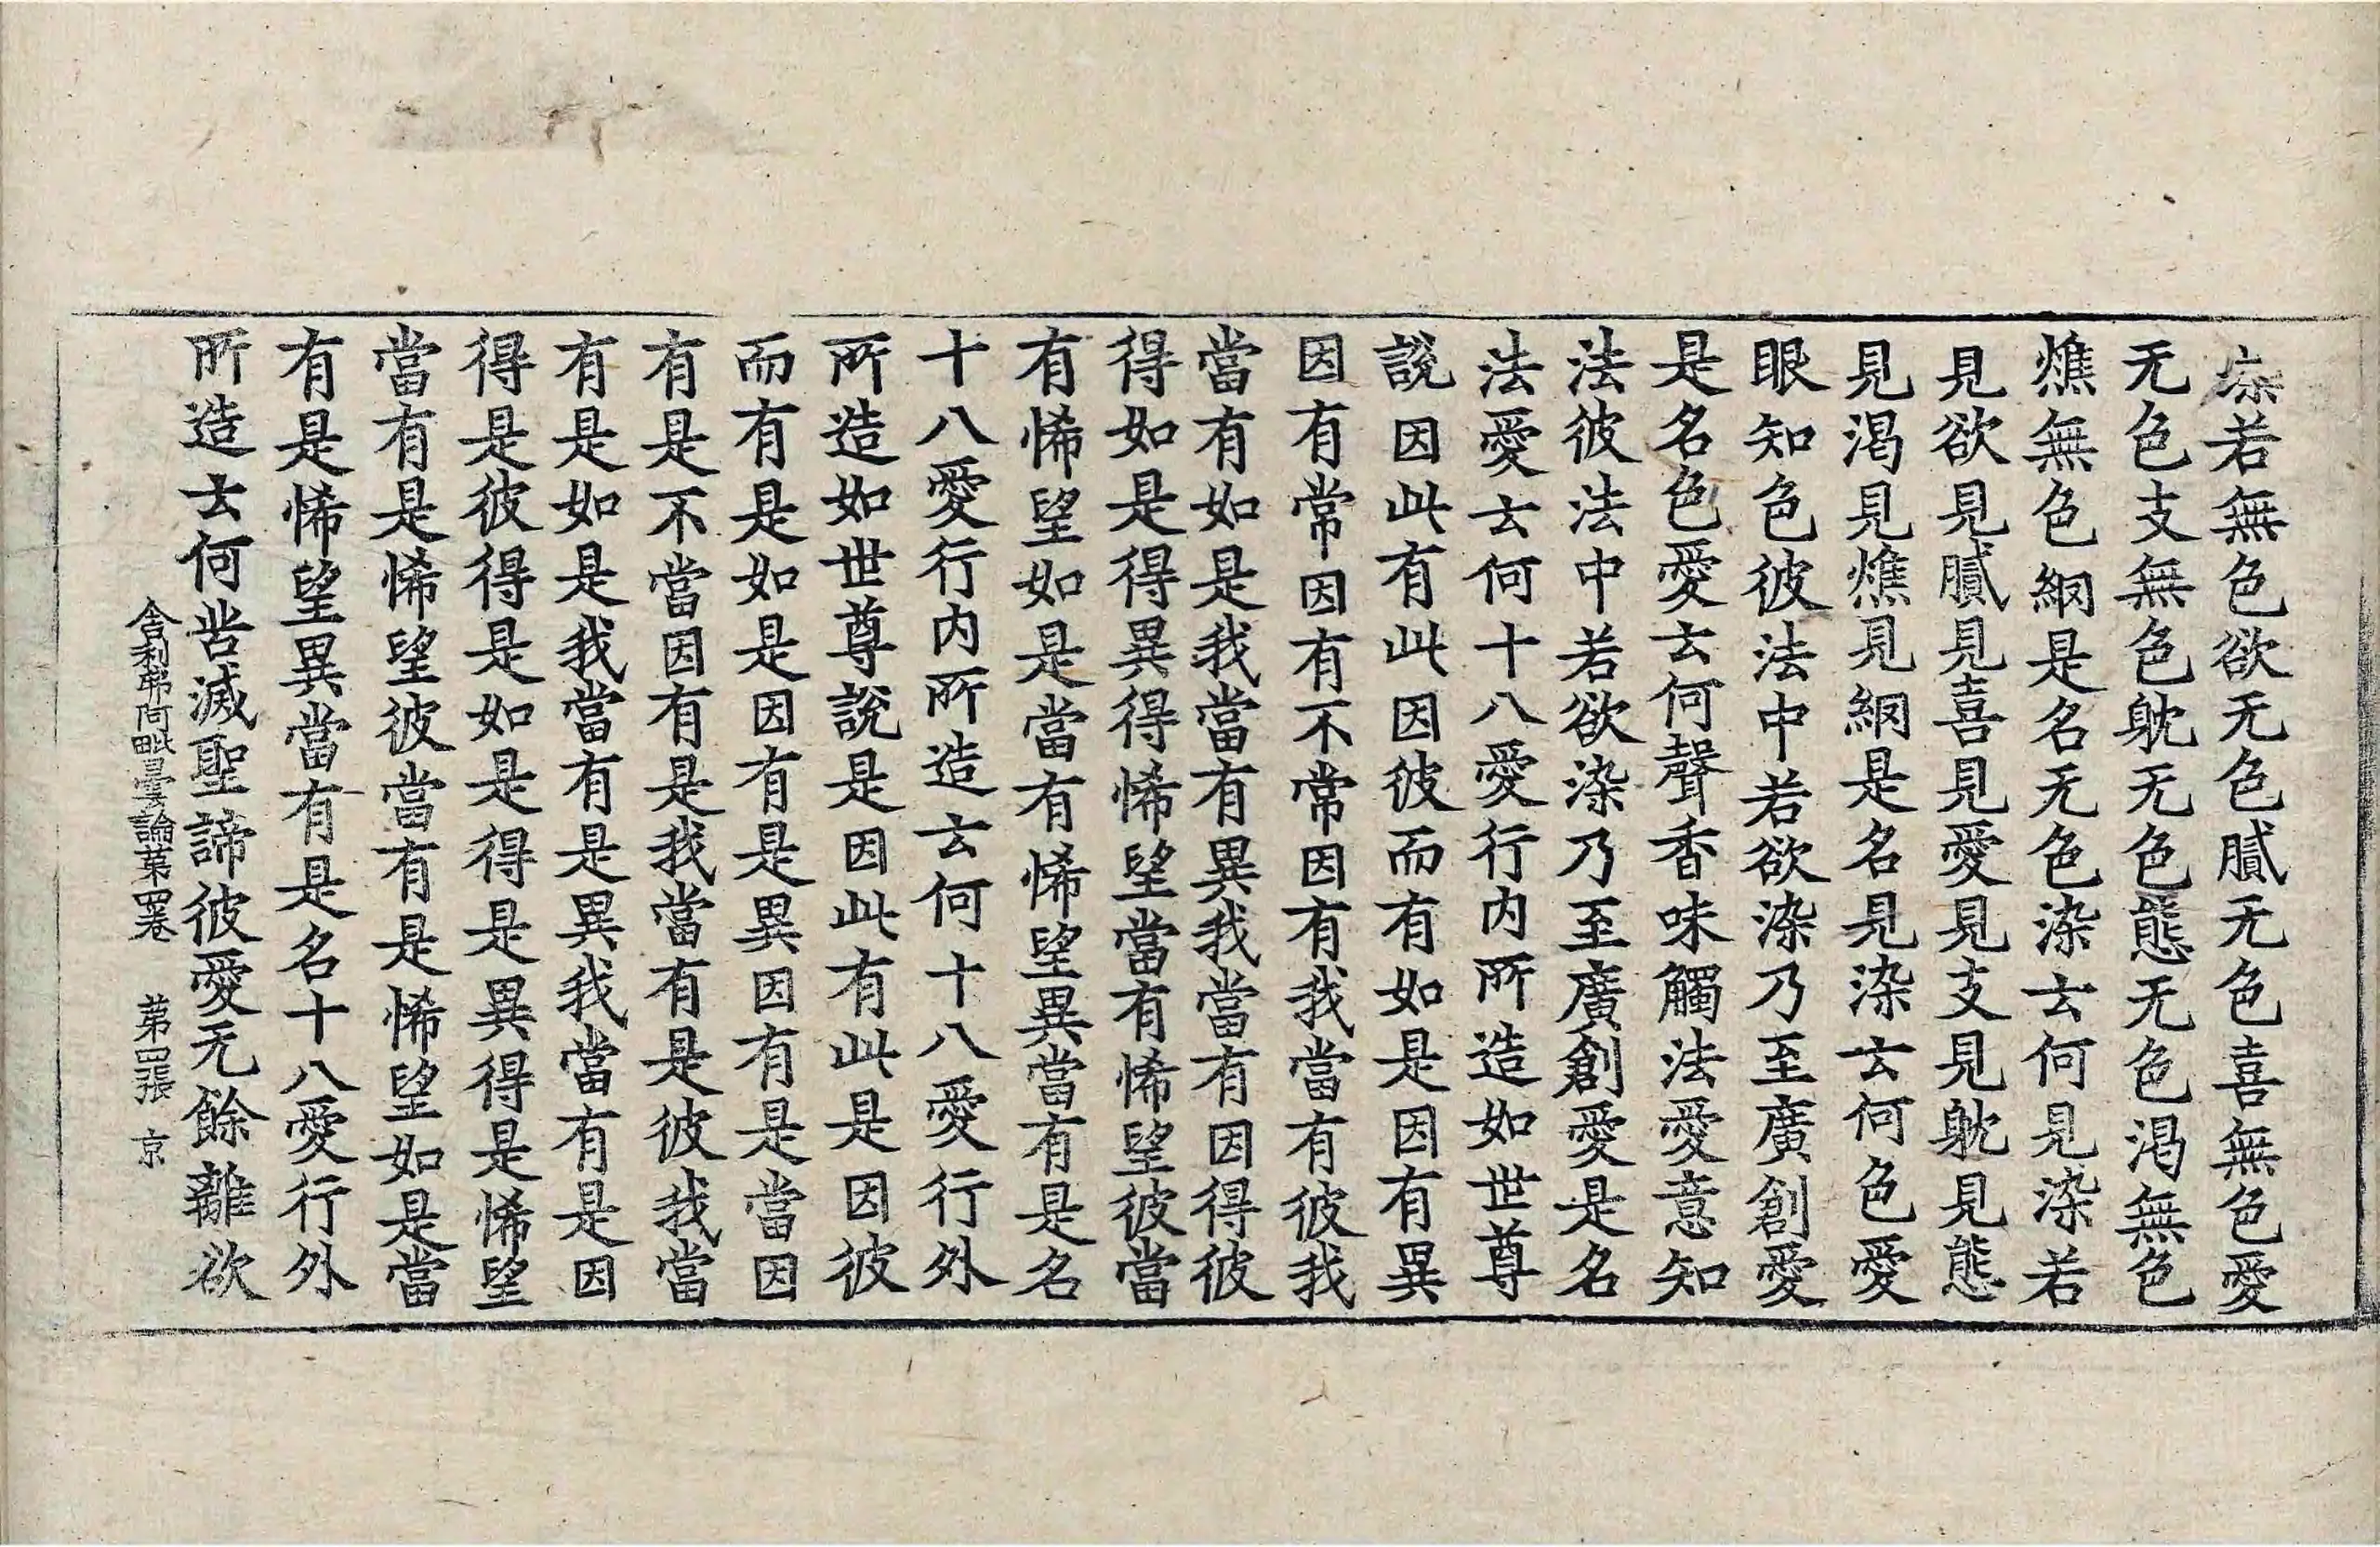 染若無色欲无色膩无色喜無色愛
无色支無色躭无色態无色渴無色
燋無色網是名无色染云何見染若
見欲見膩見喜見愛見支見躭見態
見渴見燋見網是名見染云何色愛
眼知色彼法中若欲染乃至廣創愛
是名色愛云何聲香味觸法愛意知
法彼法中若欲染乃至廣創愛是名
法愛云何十八愛行内所造如世尊
說因此有此因彼而有如是因有異
因有常因有不常因有我當有彼我
當有如是我當有異我當有因得彼
得如是得異得悕望當有悕望彼當
有悕望如是當有悕望異當有是名
十八愛行内所造云何十八愛行外
所造如世尊說是因此有此是因彼
而有是如是因有是異因有是當因
有是不當因有是我當有是彼我當
有是如是我當有是異我當有是因
得是彼得是如是得是異得是悕望
當有是悕望彼當有是悕望如是當
有是悕望異當有是名十八愛行外
所造云何苦滅聖諦彼愛无餘離欲
舎利弗阿毗曇論苐四卷 苐四張 京